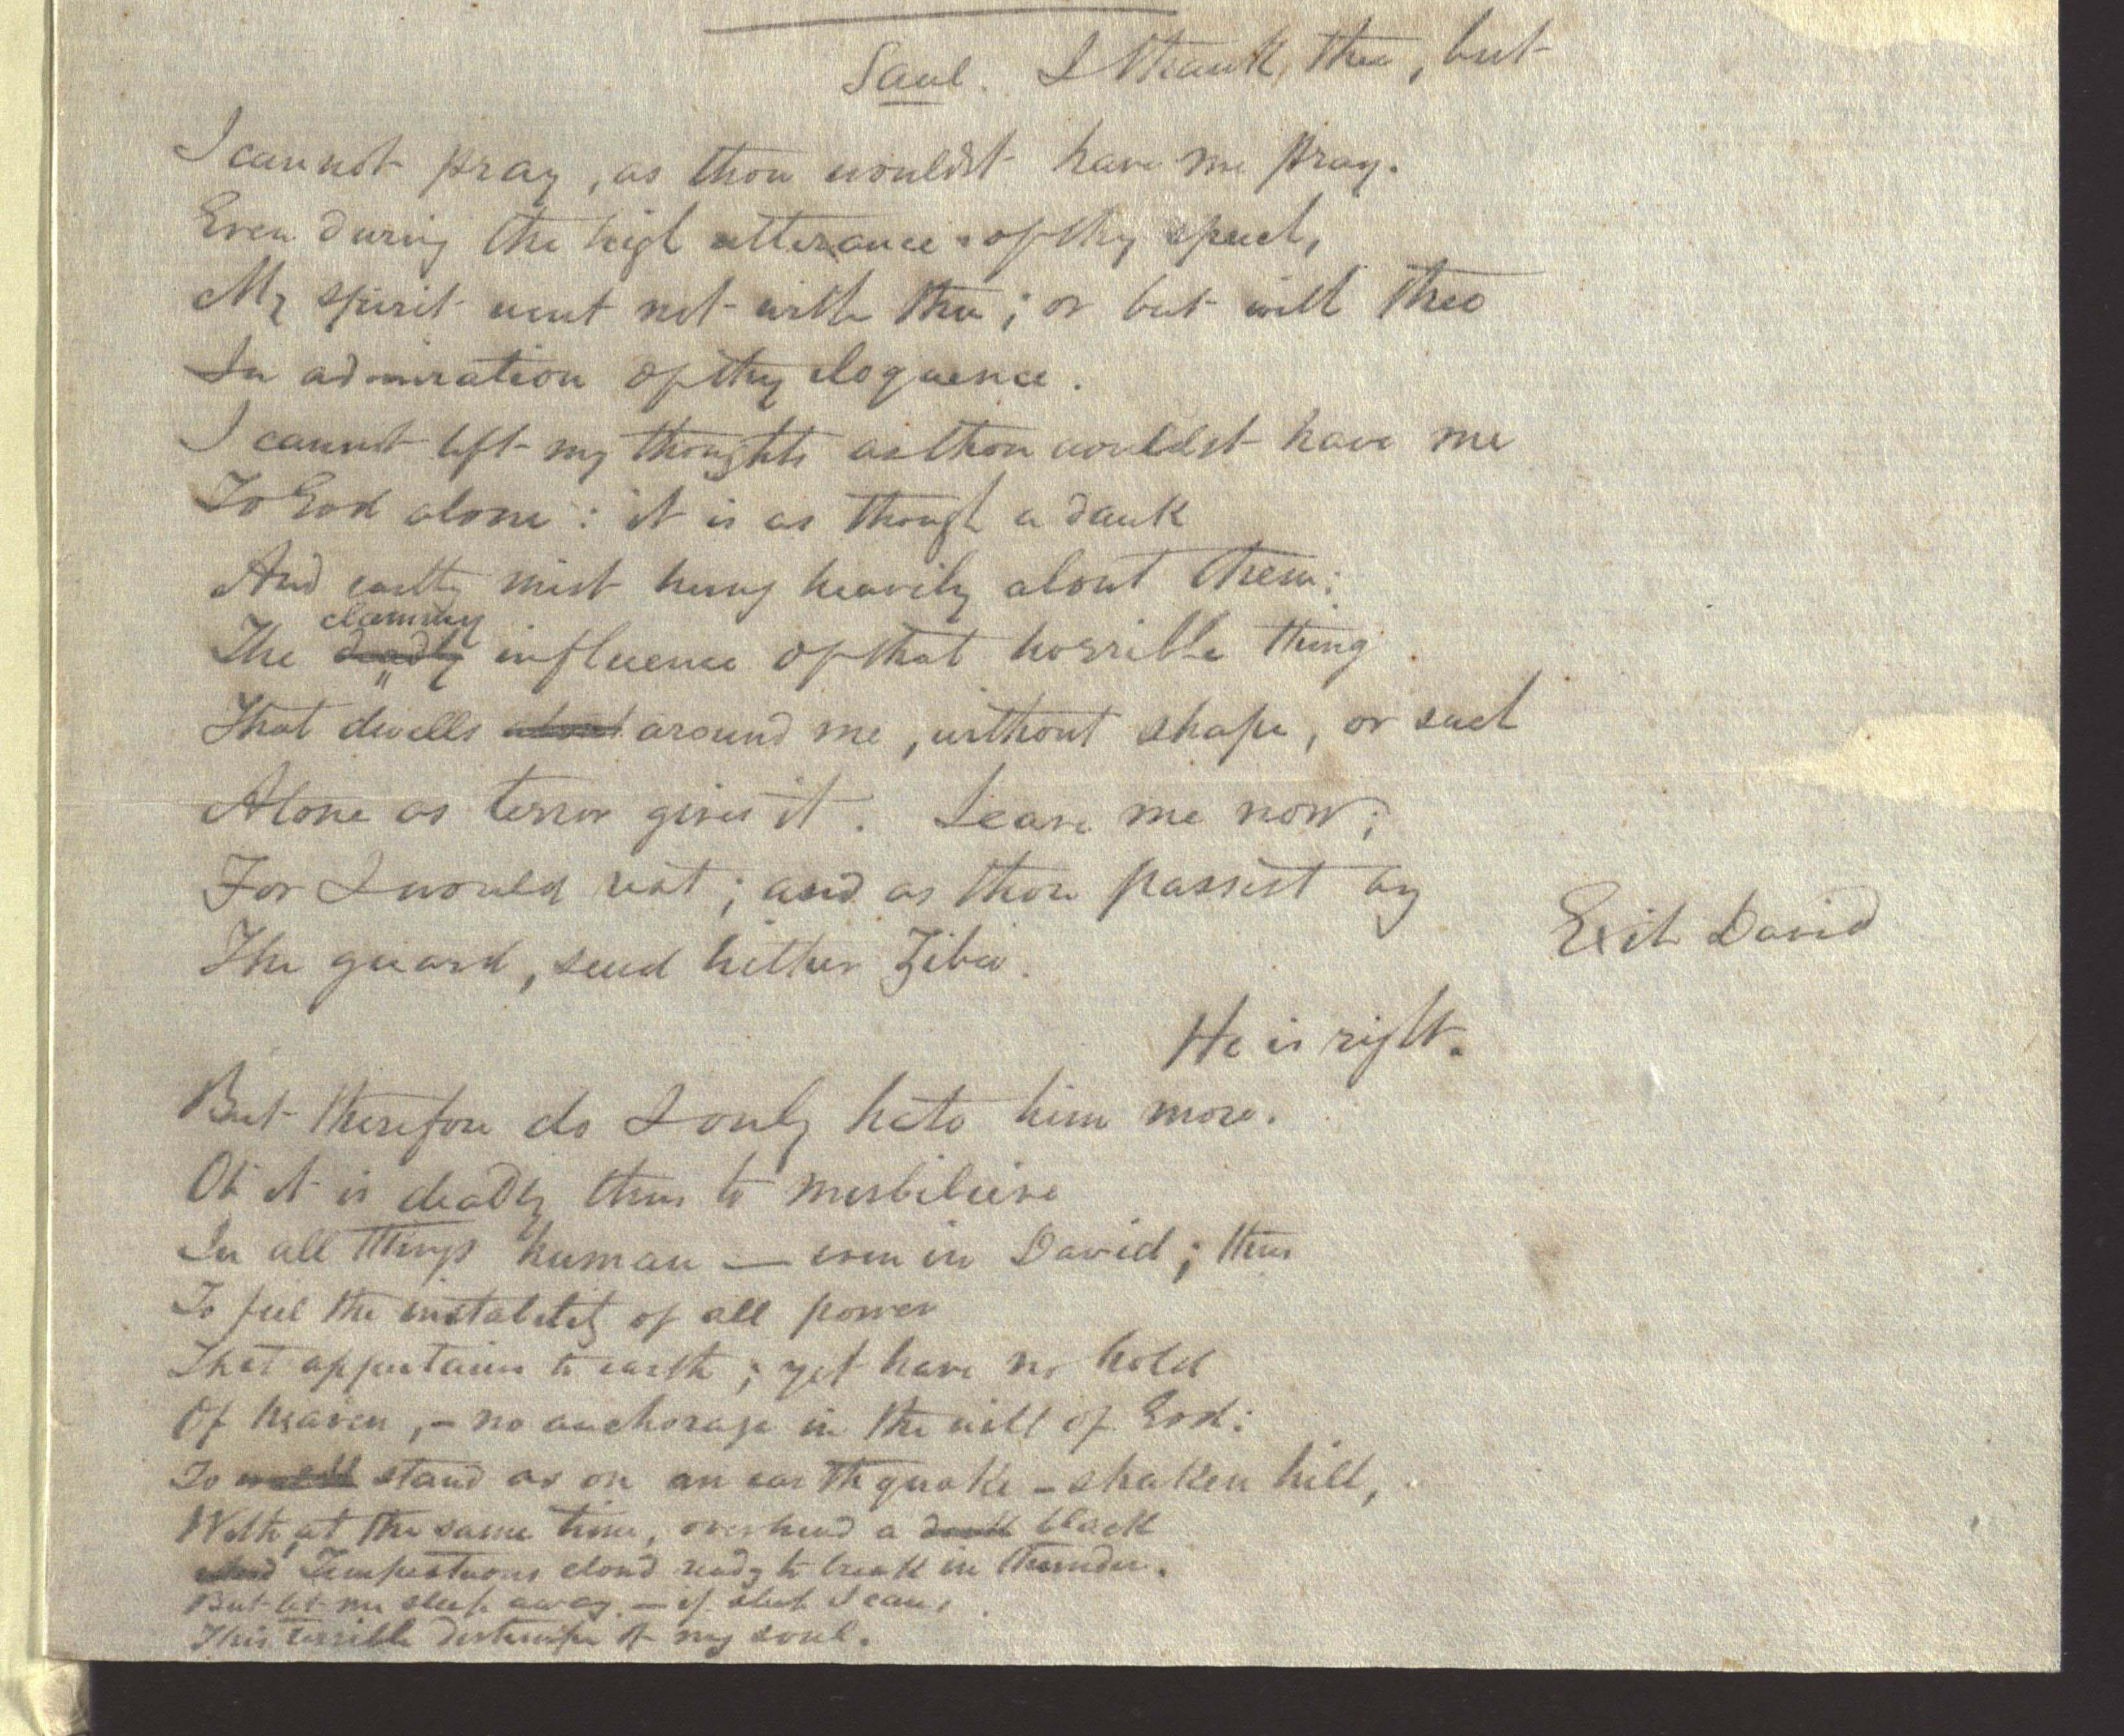 Saul. I thank thee, but
I cannot pray, as thou wouldst have me pray.
Even during the high utterance of thy speech,
My spirit went not with thee; or but with thee
In admiration of thy eloquence.
I cannot lift my thoughts as thou wouldst have me
To God alone: it is as though a dank
And earthy mist hung heavily about them:
clammy
The deadly influence of that horrible thing
That dwells about around me, without shape, or such
Alone as terror gives it. Leave me now;
For I would rest; and as thou passest by
Exit David
The guard, send hither Ziba.
He is right.
But therefore do I only hate him more.
Oh it is deadly thus to misbelieve
In all things human — even in David; thus
To feel the instability of all power
That appertains to earth; yet have no hold
Of heaven, – no anchorage in the will of God:
To stand as on an earthquake-shaken hill,
With, at the same time, overhead a dark black
And Tempestuous cloud ready to break in thunder.
But let me sleep away, – if sleep I can,
This terrible distemper of my soul.